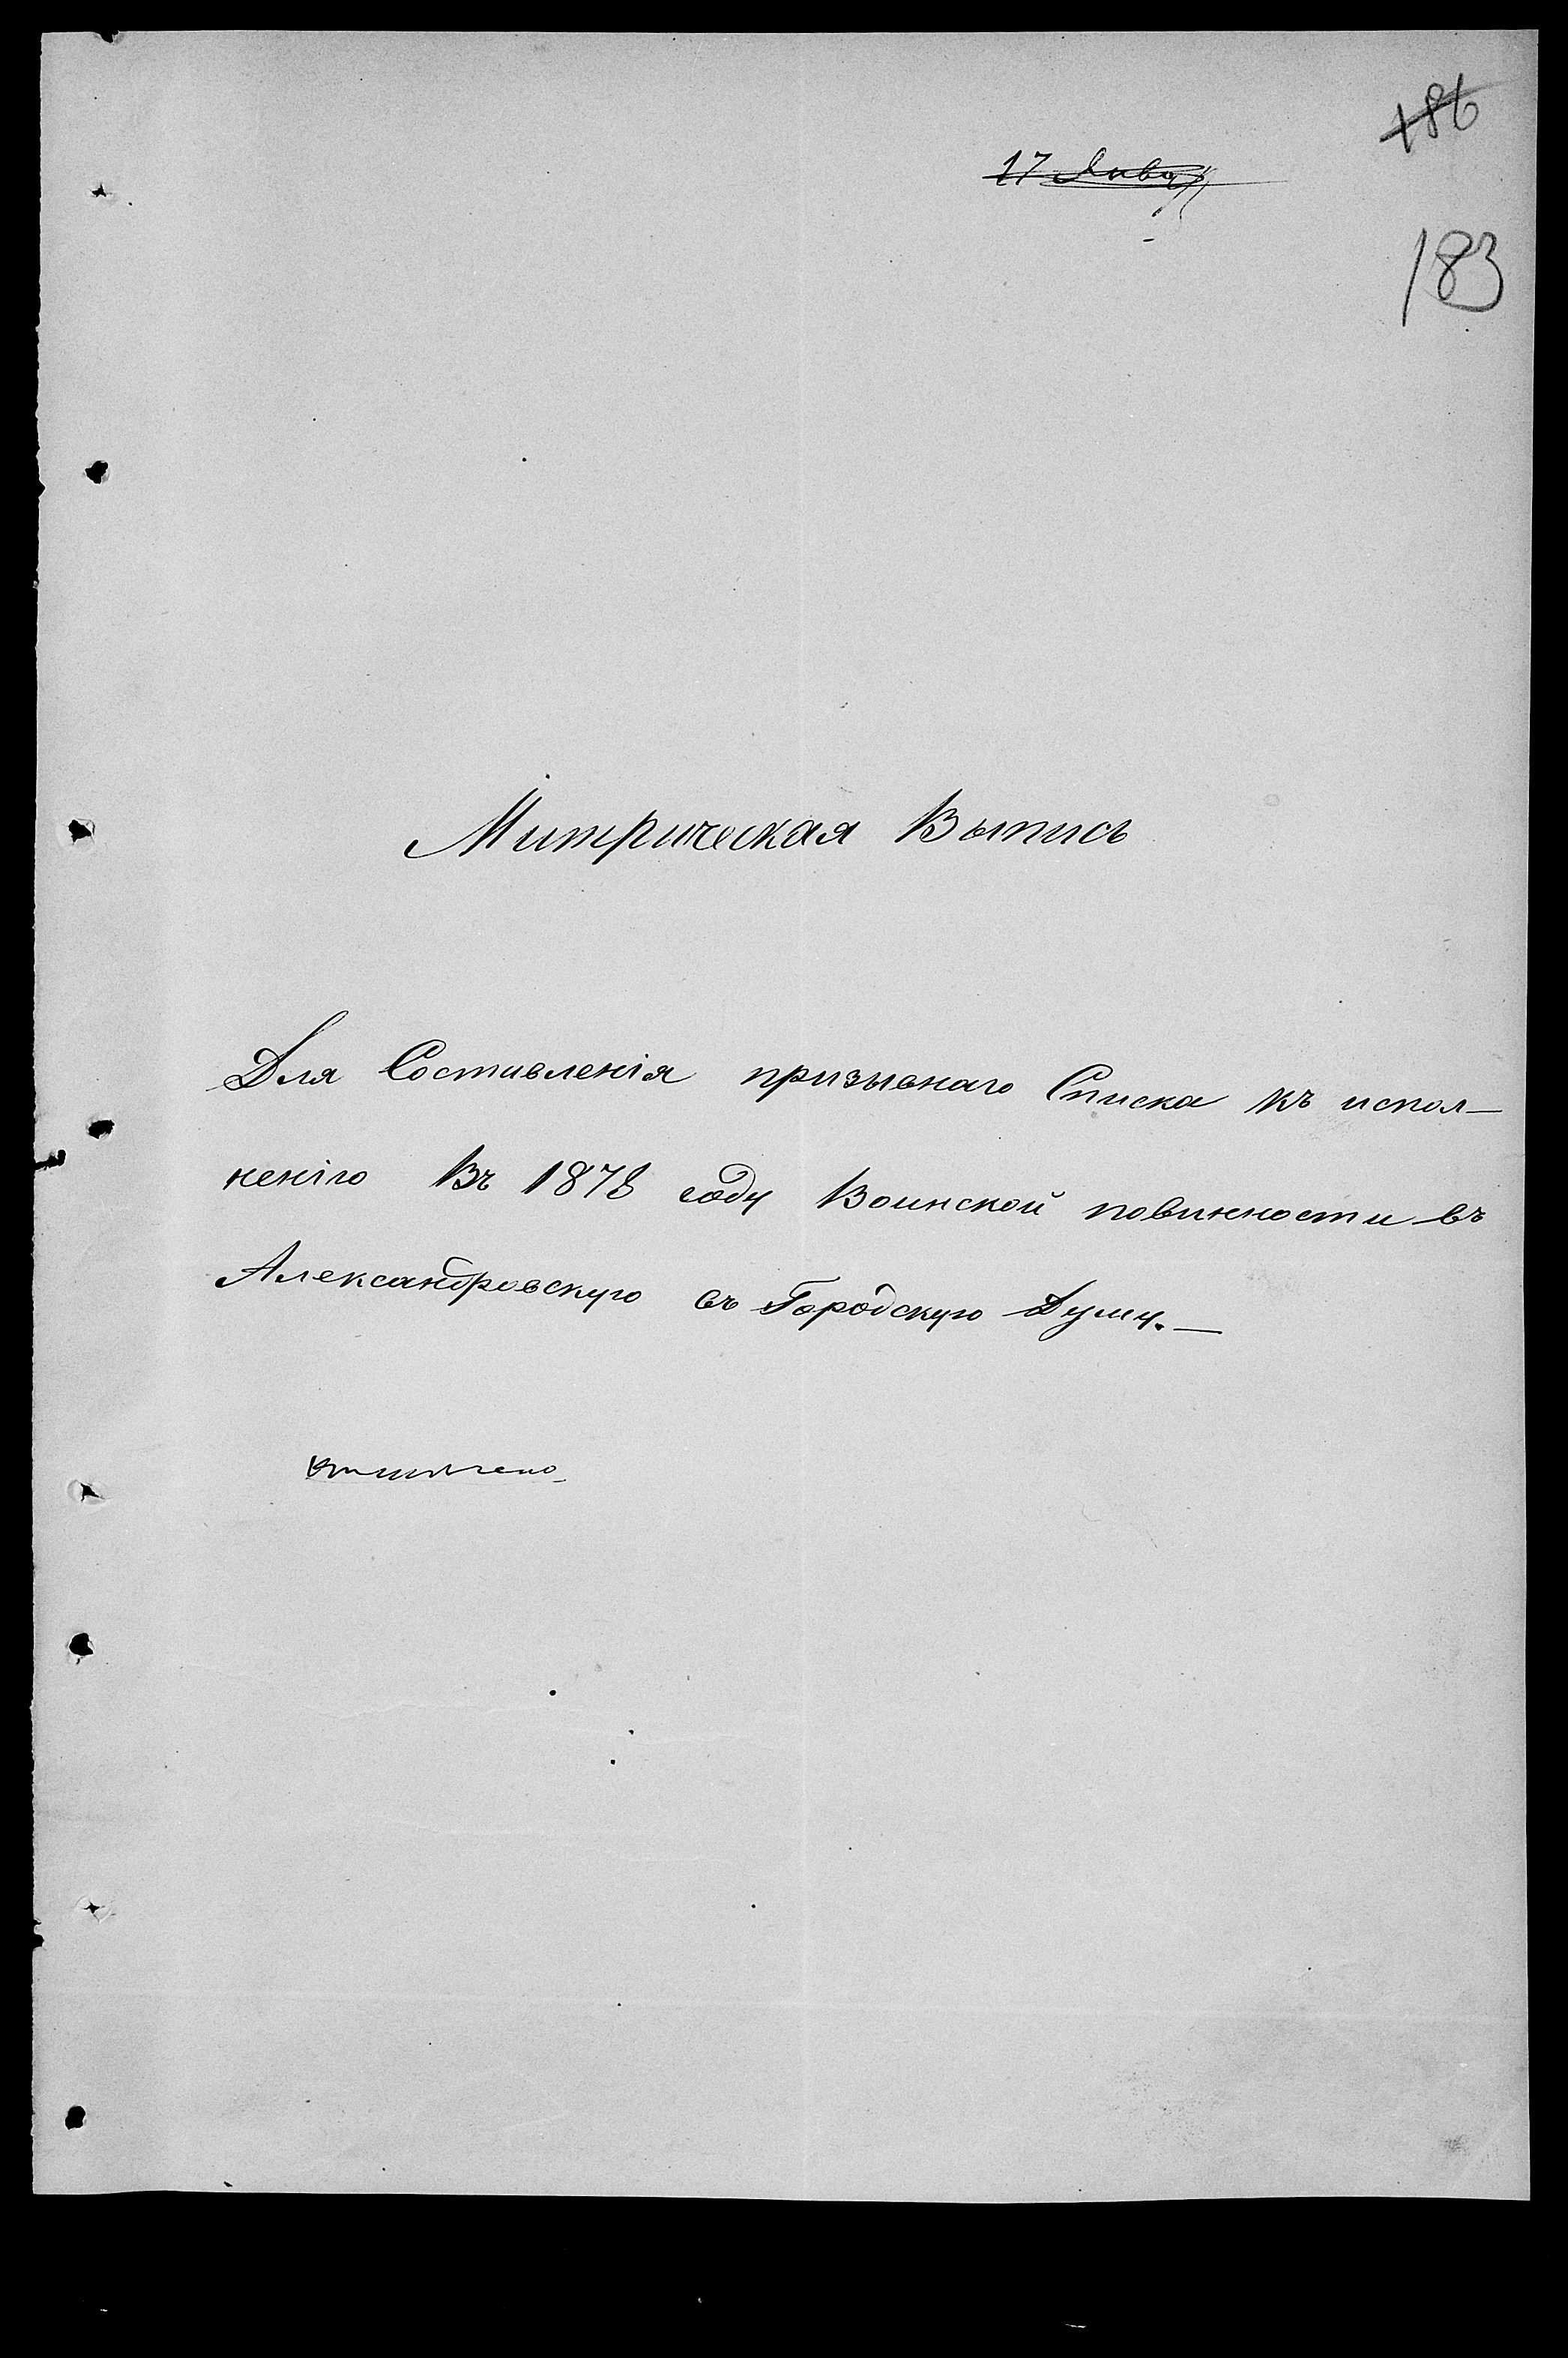 186
17 Янва
183
Митрическая Выпись
Для Составленія призывнаго Списка къ испол-
ненію Въ 1878 году Воинской повинности въ
Александровскую въ Городскую Думу.—